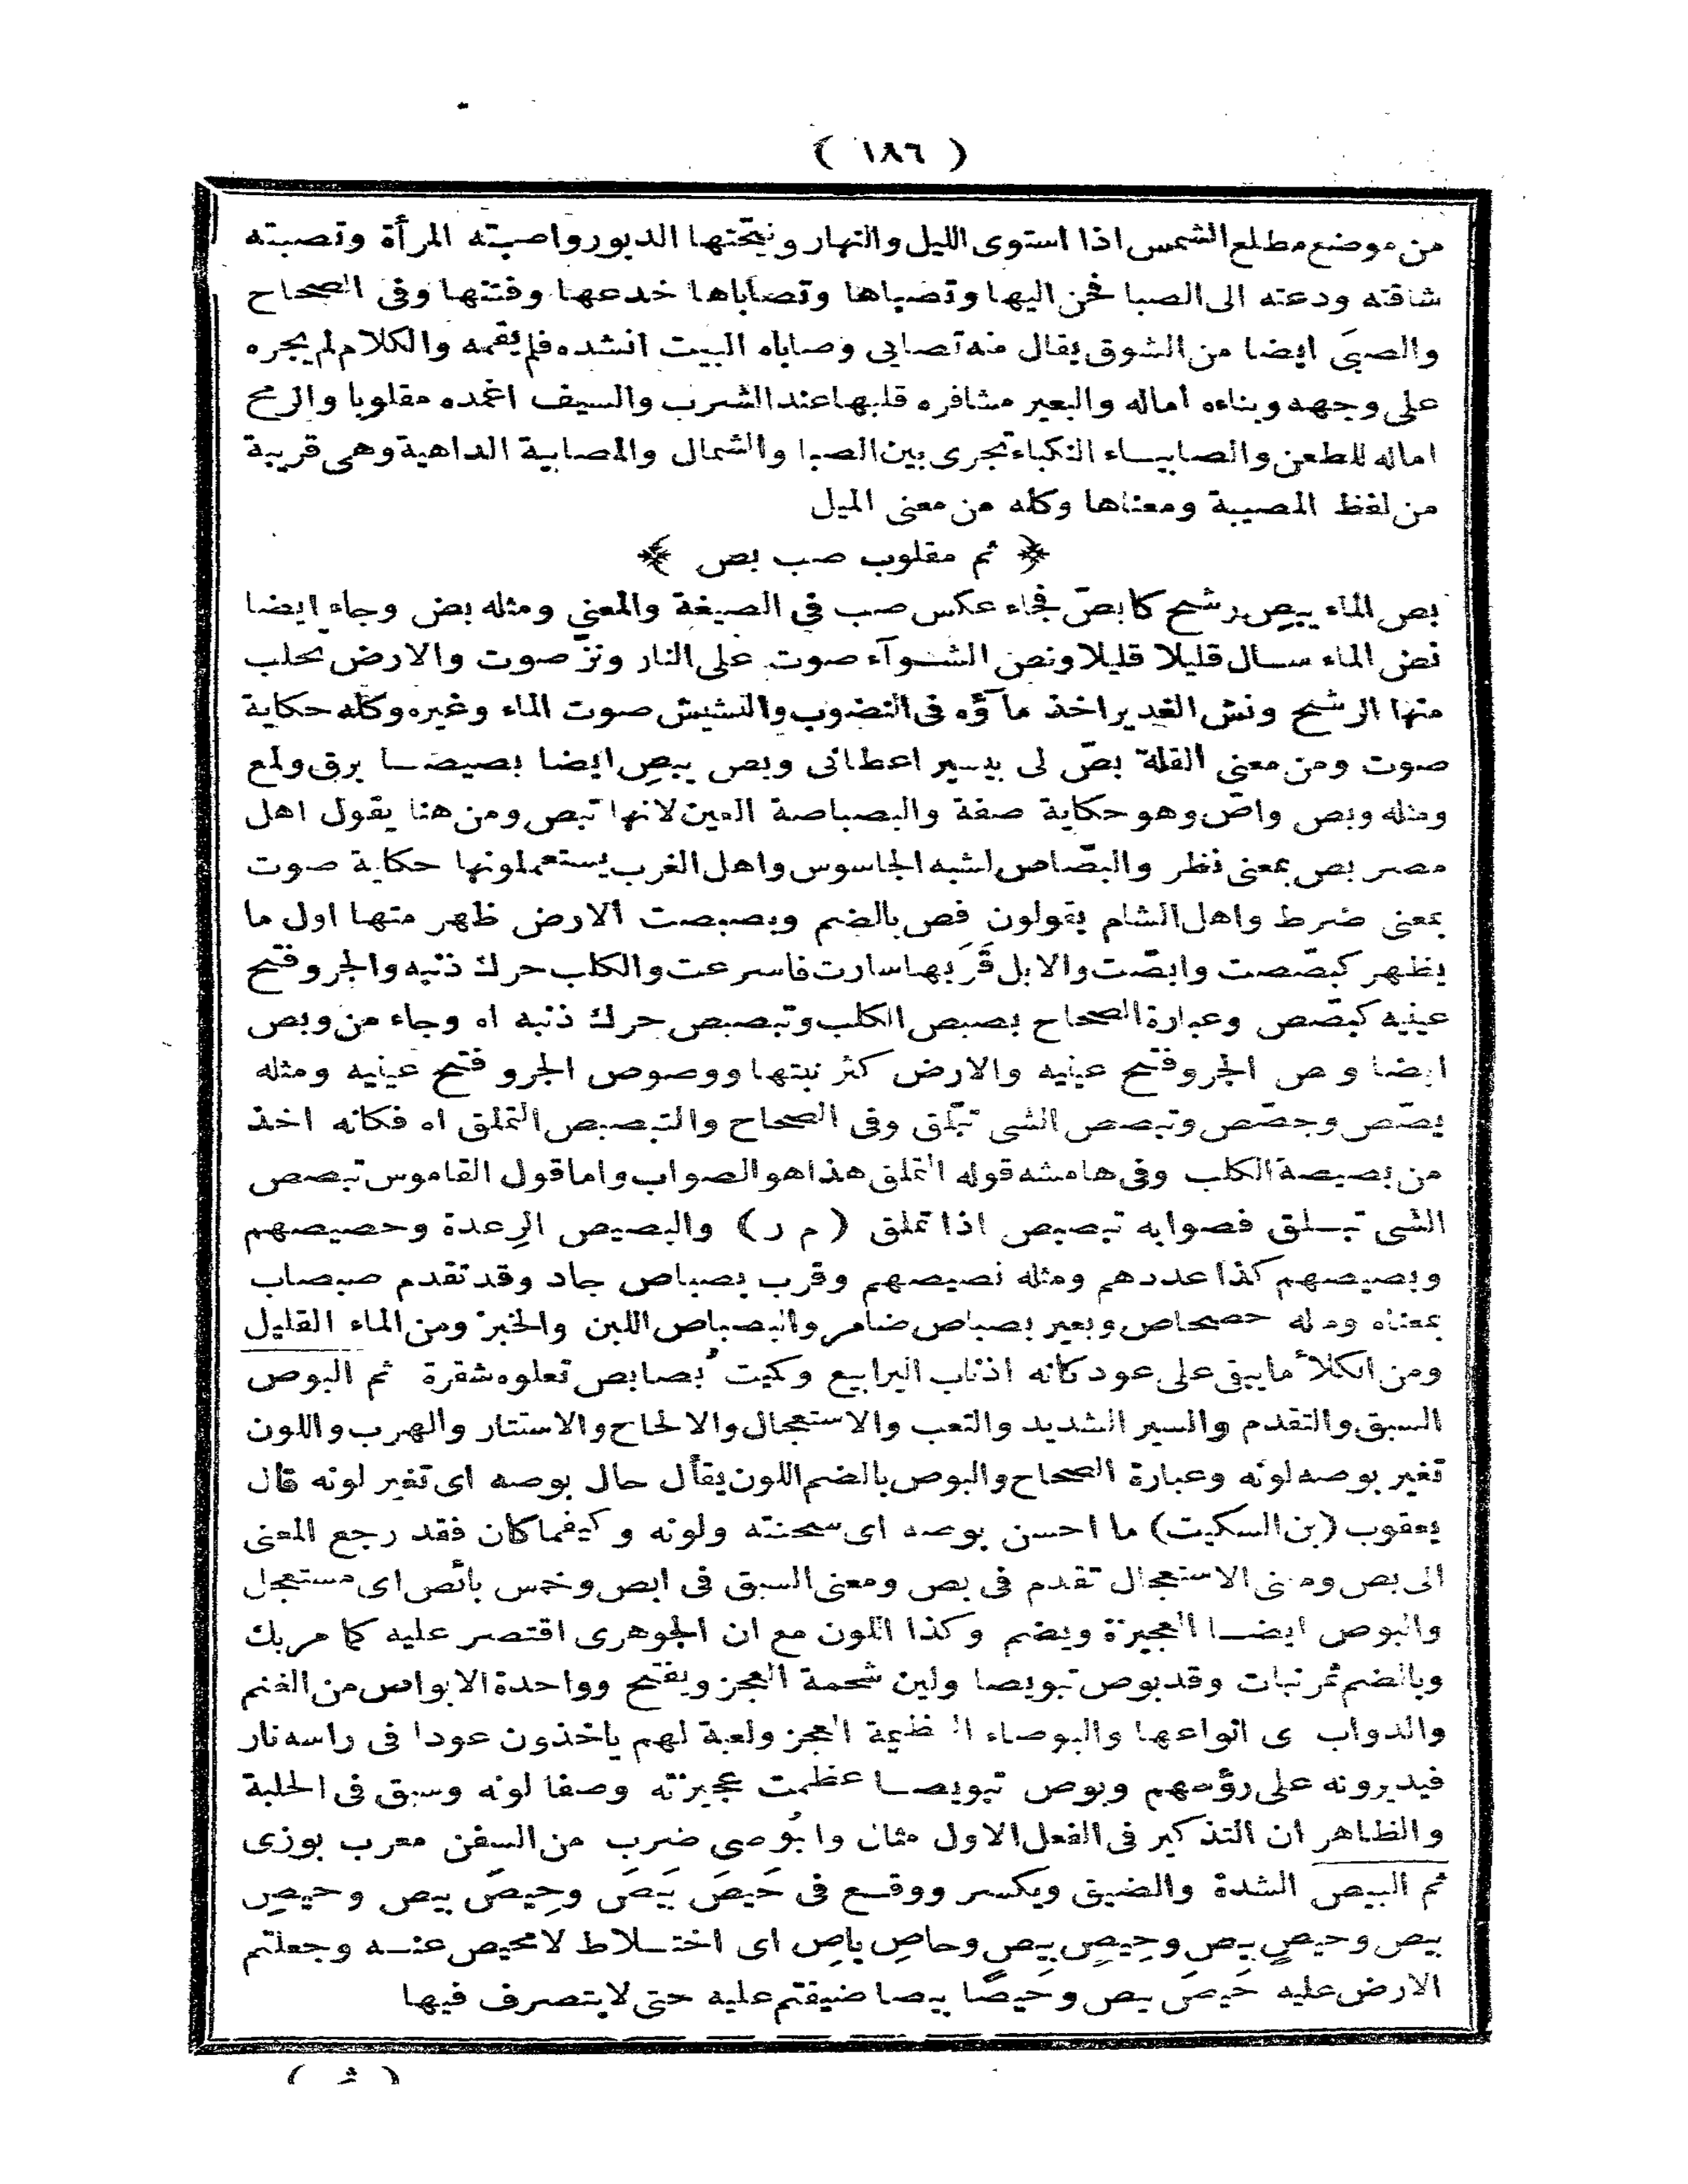 ( ١٨٦ )
من موضع مطلع الشمس اذا استوى الليل والنهار ونيحتها الدبور واصبته المرأة وتصبته
شاقته ودعته الى الصبا فحن اليها وتصباها وتصاباها خدعها وفتنها وفى الصحاح
والصبى ايضا من الشوق يقال منه تصابى وصاباه البيت انشده فلم يقمه والكلام لم يجره
على وجهه وبناءه اماله والبعير مشافره قلبها عند الشرب والسيف اغمده مقلوبا والرمح
اماله للطعن والصابيـاء النكباء تجرى بين الصبا والشمال والمصابية الداهية وهى قريبة
من لفظ المصيبة ومعناها وكله من معنى الميل
﴿ ثم مقلوب صب بص ﴾
بص الماء يبِص رشح كابصّ فجاء عكس صب فى الصيغة والمعنى ومثله بض وجاء ايضا
نض الماء سـال قليلا قليلا ونص الشـوآء صوت على النار ونزّ صوت والارض تحلب
منها الرشح ونش الغدير اخذ ماؤه فى النضوب والنشيش صوت الماء وغيره وكله حكاية
صوت ومن معنى القلة بصّ لى بيسير اعطانى وبص يبِص ايضا بصيصـا برق ولمع
ومثله وبص واصّ وهو حكاية صفة والبصباصة العين لانها تبص ومن هنا يقول اهل
مصر بص بمعنى نظر والبصّاص لشبه الجاسوس واهل الغرب يستعملونها حكاية صوت
بمعنى ضرط واهل الشام يقولون فص بالضم وبصبصت الارض ظهر منها اول ما
يظهر كبصّصت وابصّت والابل قَرَبها سارت فاسرعت والكلب حرك ذنبه والجرو فتح
عينيه كبصّص وعبارة الصحاح بصبص الكلب وتبصبص حرك ذنبه اه وجاء من وبص
ايضا وص الجرو فتح عينيه والارض كثر نبتها ووصوص الجرو فتح عينيه ومثله
يصّص وجصّص وتبصص الشى تبلّق وفى الصحاح والتبصبص التملق اه فكانه اخذ
من بصبصة الكلب وفى هامشه قوله التملق هذا هو الصواب واما قول القاموس تبصص
الشى تبـلق فصوابه تبصبص اذا تملق ( م ر ) والبصيص الرِعدة وحصيصهم
وبصيصهم كذا عددهم ومثله نصيصهم وقرب بصباص جاد وقد تقدم صبصاب
بمعناه ومثله حصحاص وبعير بصباص ضامر والبصباص اللبن والخبز ومن الماء القليل
ومن الكلأ ما يبقى على عود كانه اذناب اليرابيع وكميت بُصابص تعلوه شقرة ثم البوص
السبق والتقدم والسير الشديد والتعب والاستعجال والالحاح والاستتار والهرب واللون
تغير بوصه لونه وعبارة الصحاح والبوص بالضم اللون يقال حال بوصه اى تغير لونه قال
يعقوب (بن السكيت) ما احسن بوصه اى سحنته ولونه وكيفما كان فقد رجع المعنى
الى بص ومعنى الاستعجال تقدم فى بص ومعنى السبق فى ابص وخمس بائص اى مستعجل
والبوص ايضـا العجيزة ويضم وكذا اللون مع ان الجوهرى اقتصر عليه كما مر بك
وبالضم ثمر نبات وقد بوص تبويصا ولين شحمة العجز ويفتح وواحدة الابواص من الغنم
والدواب ى انواعها والبوصاء العظيمة العجز ولعبة لهم ياخذون عودا فى راسه نار
فيديرونه على رؤسهم وبوص تبويصـا عظمت عجيزته وصفا لونه وسبق فى الحلبة
والظاهر ان التذكير فى الفعل الاول مثال والبُوصى ضرب من السفن معرب بوزى
ثم البيص الشدة والضيق ويكسر ووقـع فى حَيصَ بَيصَ وحِيصَ بيص وحيصِ
بيص وحيصٍ بيص وحِيصِ بِيصِ وحاصِ باصِ اى اختـلاط لا محيص عنـه وجعلتم
الارض عليه حَيصَ بيص وحَيصًا بيصا ضيقتم عليه حتى لا يتصرف فيها